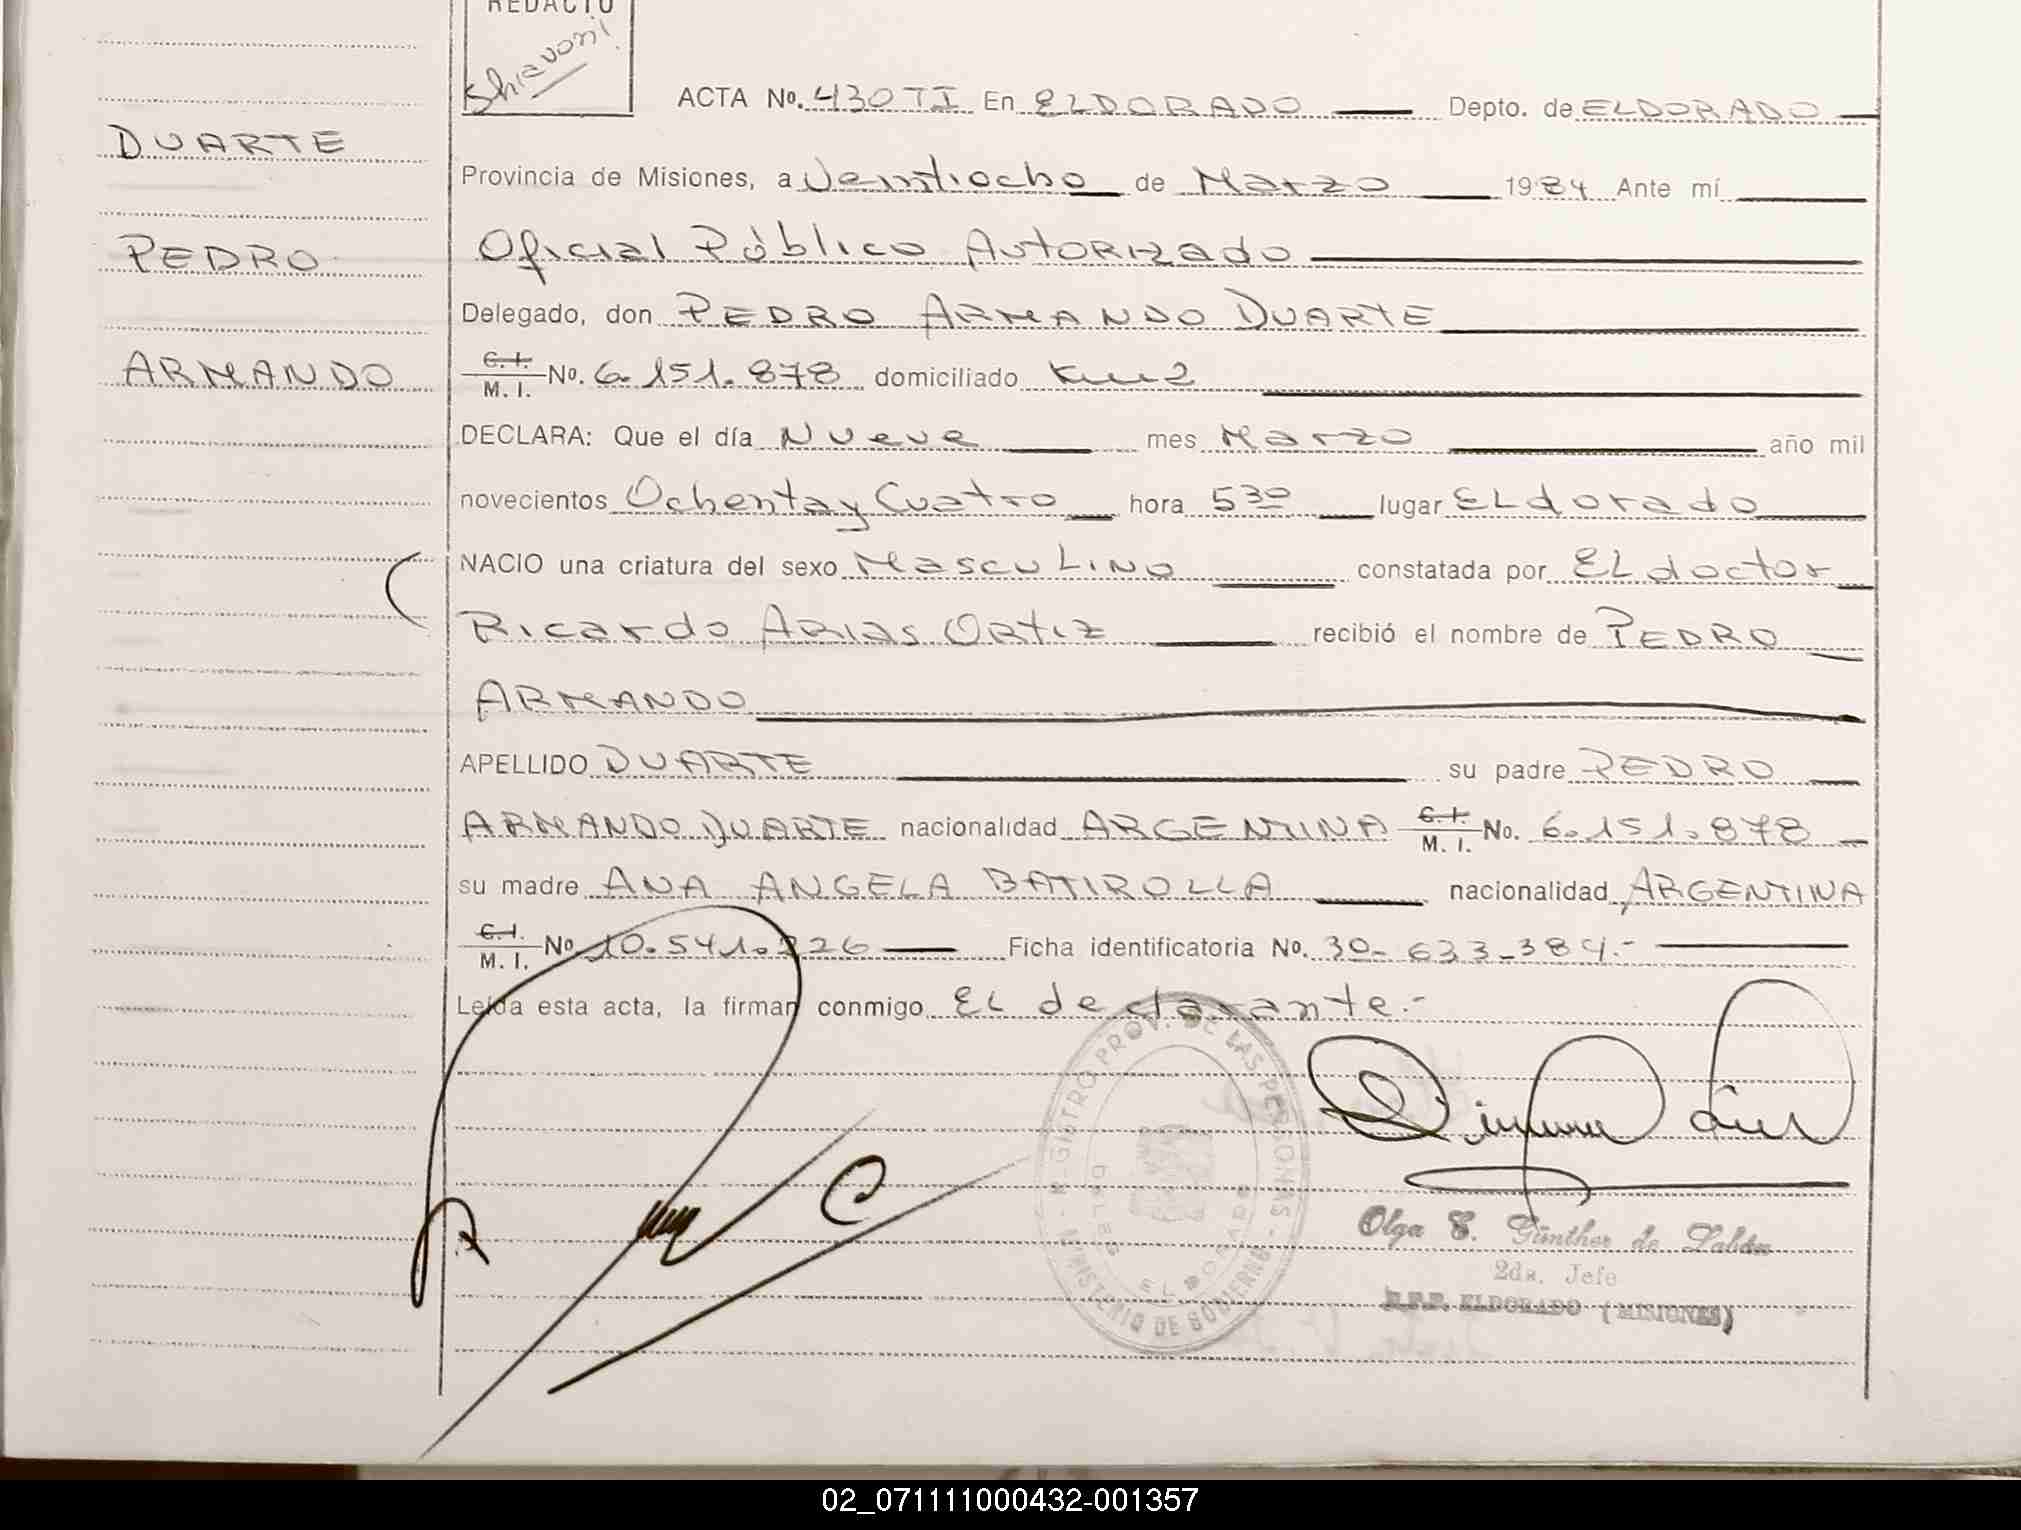 REDACTO
Shiavoni
ACTA No. 430 TI En ELDORADO Depto. de ELDORADO
DUARTE
Provincia de Misiones, a Veintiocho de Marzo 1984 Ante mí
PEDRO
Oficial Público Autorizado
Delegado, don PEDRO ARMANDO DUARTE
ARMANDO
C.I. M.I. No. 6.151.878 domiciliado Km 2
DECLARA: Que el día Nueve mes Marzo año mil
novecientos Ochenta y Cuatro hora 5 30 lugar ELdorado
NACIO una criatura del sexo MascuLino constatada por EL doctor
Ricardo Arias Ortiz recibió el nombre de PEDRO
ARMANDO
APELLIDO DUARTE su padre PEDRO
ARMANDO DUARTE nacionalidad ARGENTINA C.I. M.I. No. 6.151.878
su madre ANA ANGELA BATIROLLA nacionalidad ARGENTINA
C.I. M.I. No 10.541.226 Ficha identificatoria No. 30-633-384.-
Leída esta acta, la firman conmigo EL declarante.-
REGISTRO PROV. DE LAS PERSONAS - MINISTERIO DE GOBIERNO -
DELEG. ELDORADO
Olga E. Günther de
2da. Jefe
ELDORADO (MISIONES)
02_071111000432-001357